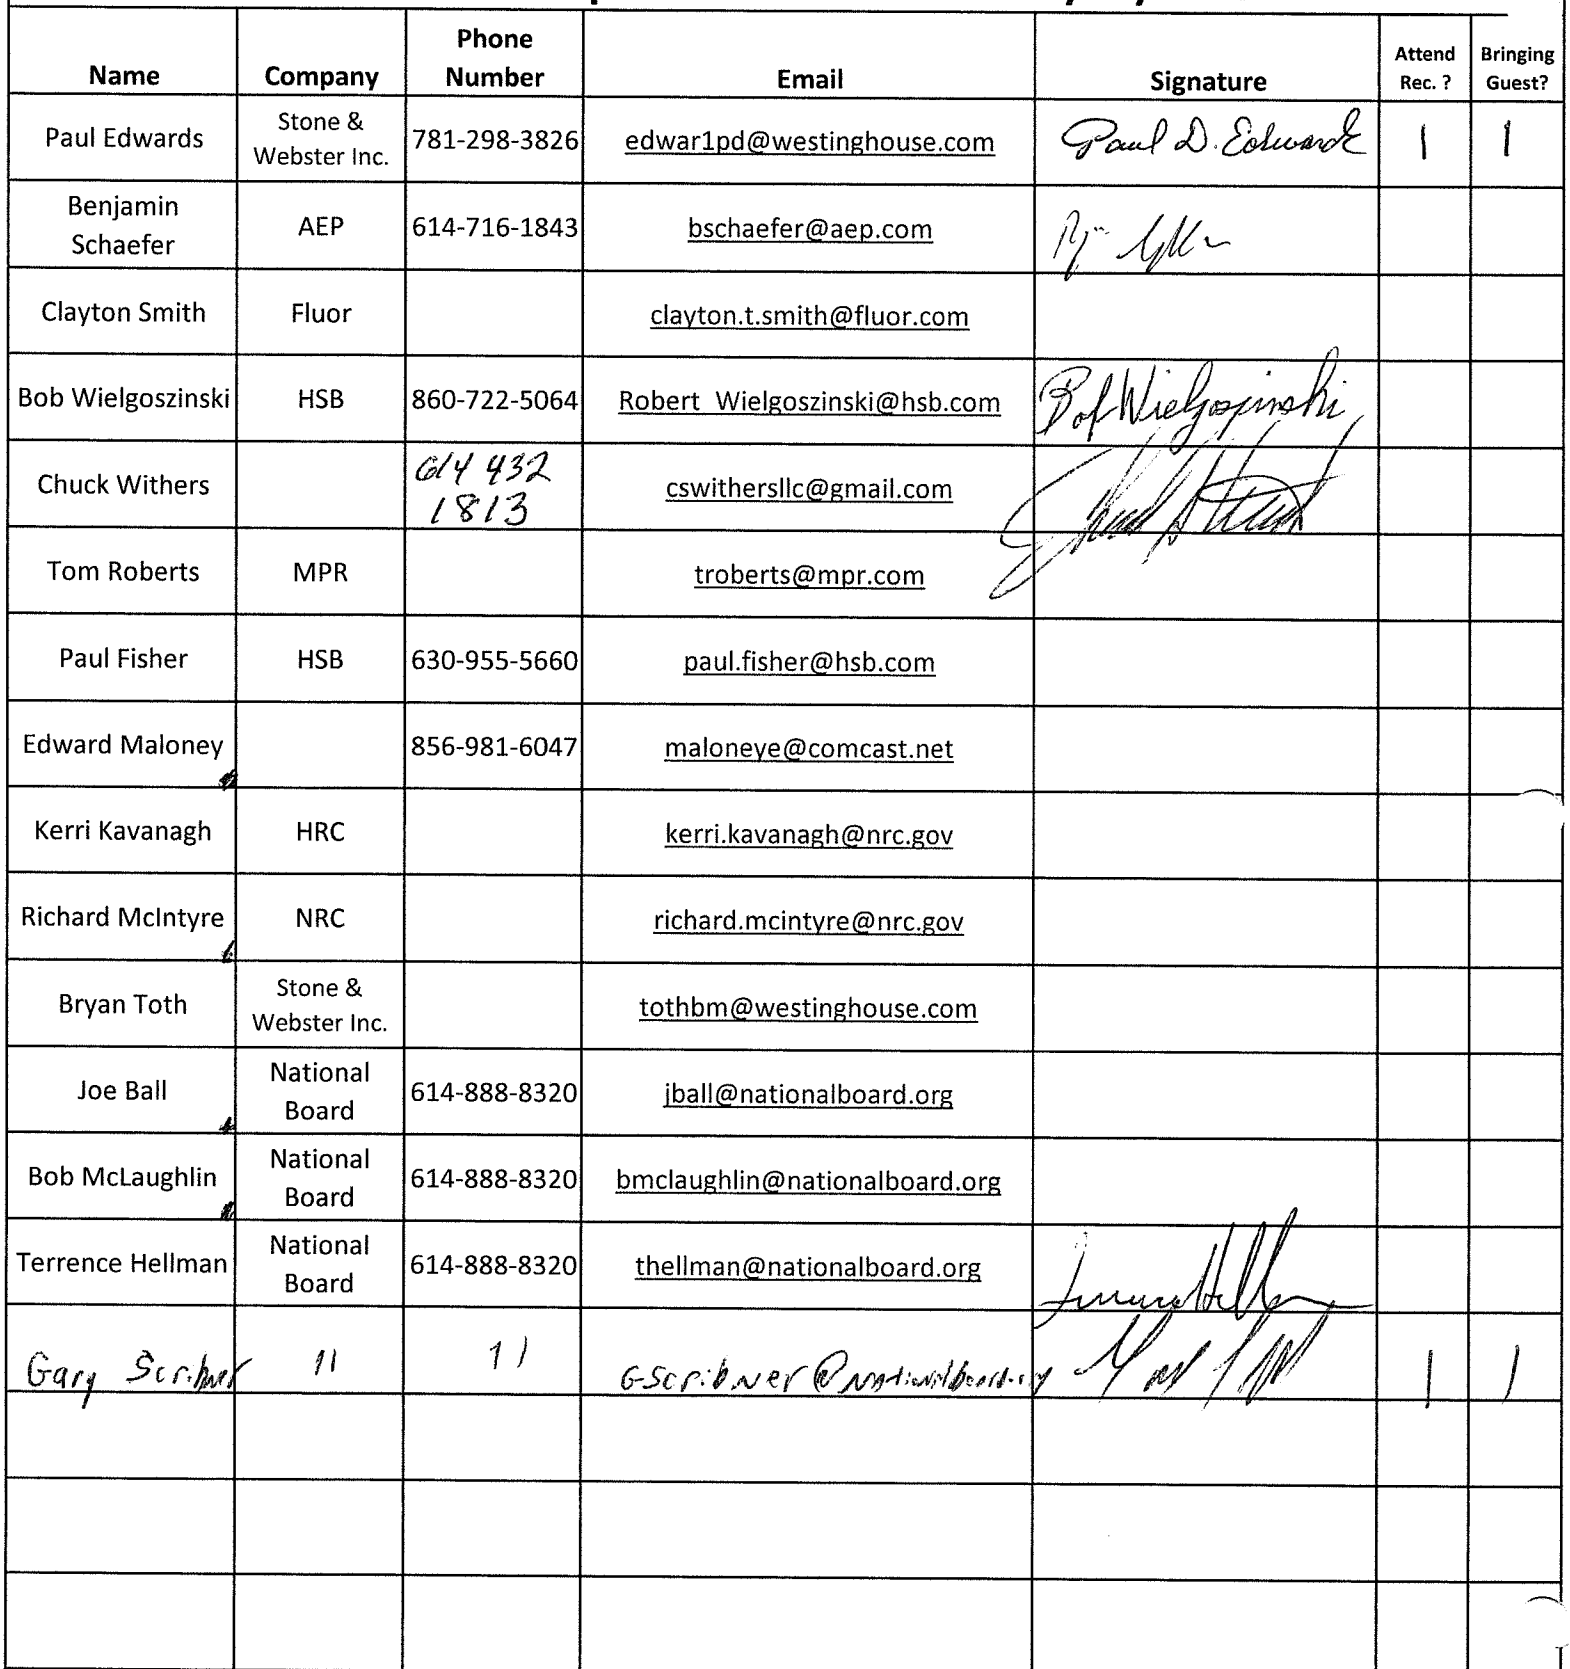 Name Company Phone Number Email Signature Attend Rec. ? Bringing Guest?
Paul Edwards Stone & Webster Inc. 781-298-3826 edwar1pd@westinghouse.com Paul D. Edwards 1 1
Benjamin Schaefer AEP 614-716-1843 bschaefer@aep.com
Clayton Smith Fluor clayton.t.smith@fluor.com
Bob Wielgoszinski HSB 860-722-5064 Robert_Wielgoszinski@hsb.com Bob Wielgoszinski
Chuck Withers 614 432 1813 cswithersllc@gmail.com
Tom Roberts MPR troberts@mpr.com
Paul Fisher HSB 630-955-5660 paul.fisher@hsb.com
Edward Maloney 856-981-6047 maloneye@comcast.net
Kerri Kavanagh HRC kerri.kavanagh@nrc.gov
Richard McIntyre NRC richard.mcintyre@nrc.gov
Bryan Toth Stone & Webster Inc. tothbm@westinghouse.com
Joe Ball National Board 614-888-8320 jball@nationalboard.org
Bob McLaughlin National Board 614-888-8320 bmclaughlin@nationalboard.org
Terrence Hellman National Board 614-888-8320 thellman@nationalboard.org
Gary Scribner 11 11 GScribner@nationalboard.org 1 1